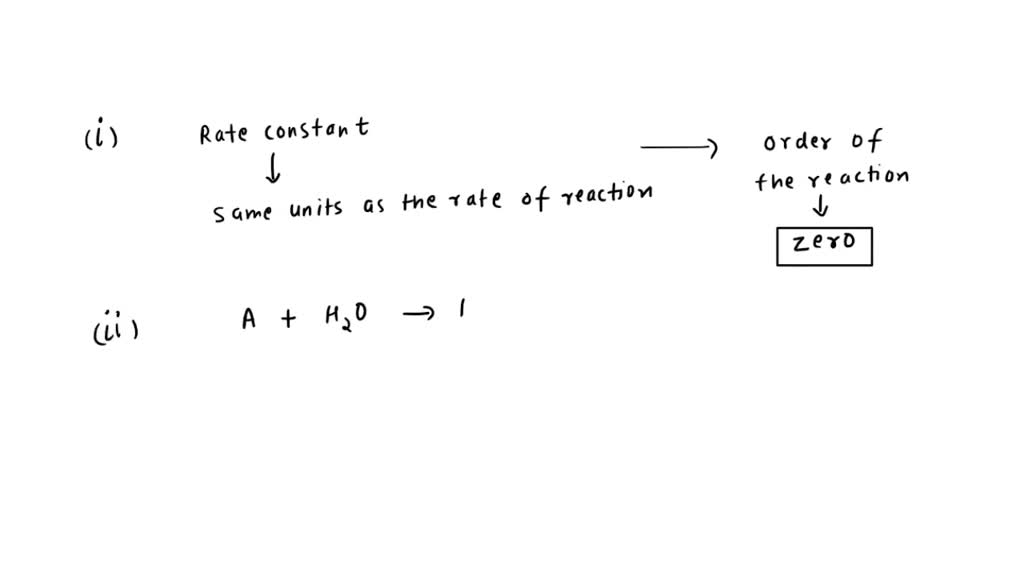 (i) Rate constant
↓
same units as the rate of reaction
→ order of
the reaction
↓
zero
(ii) A + H₂O →